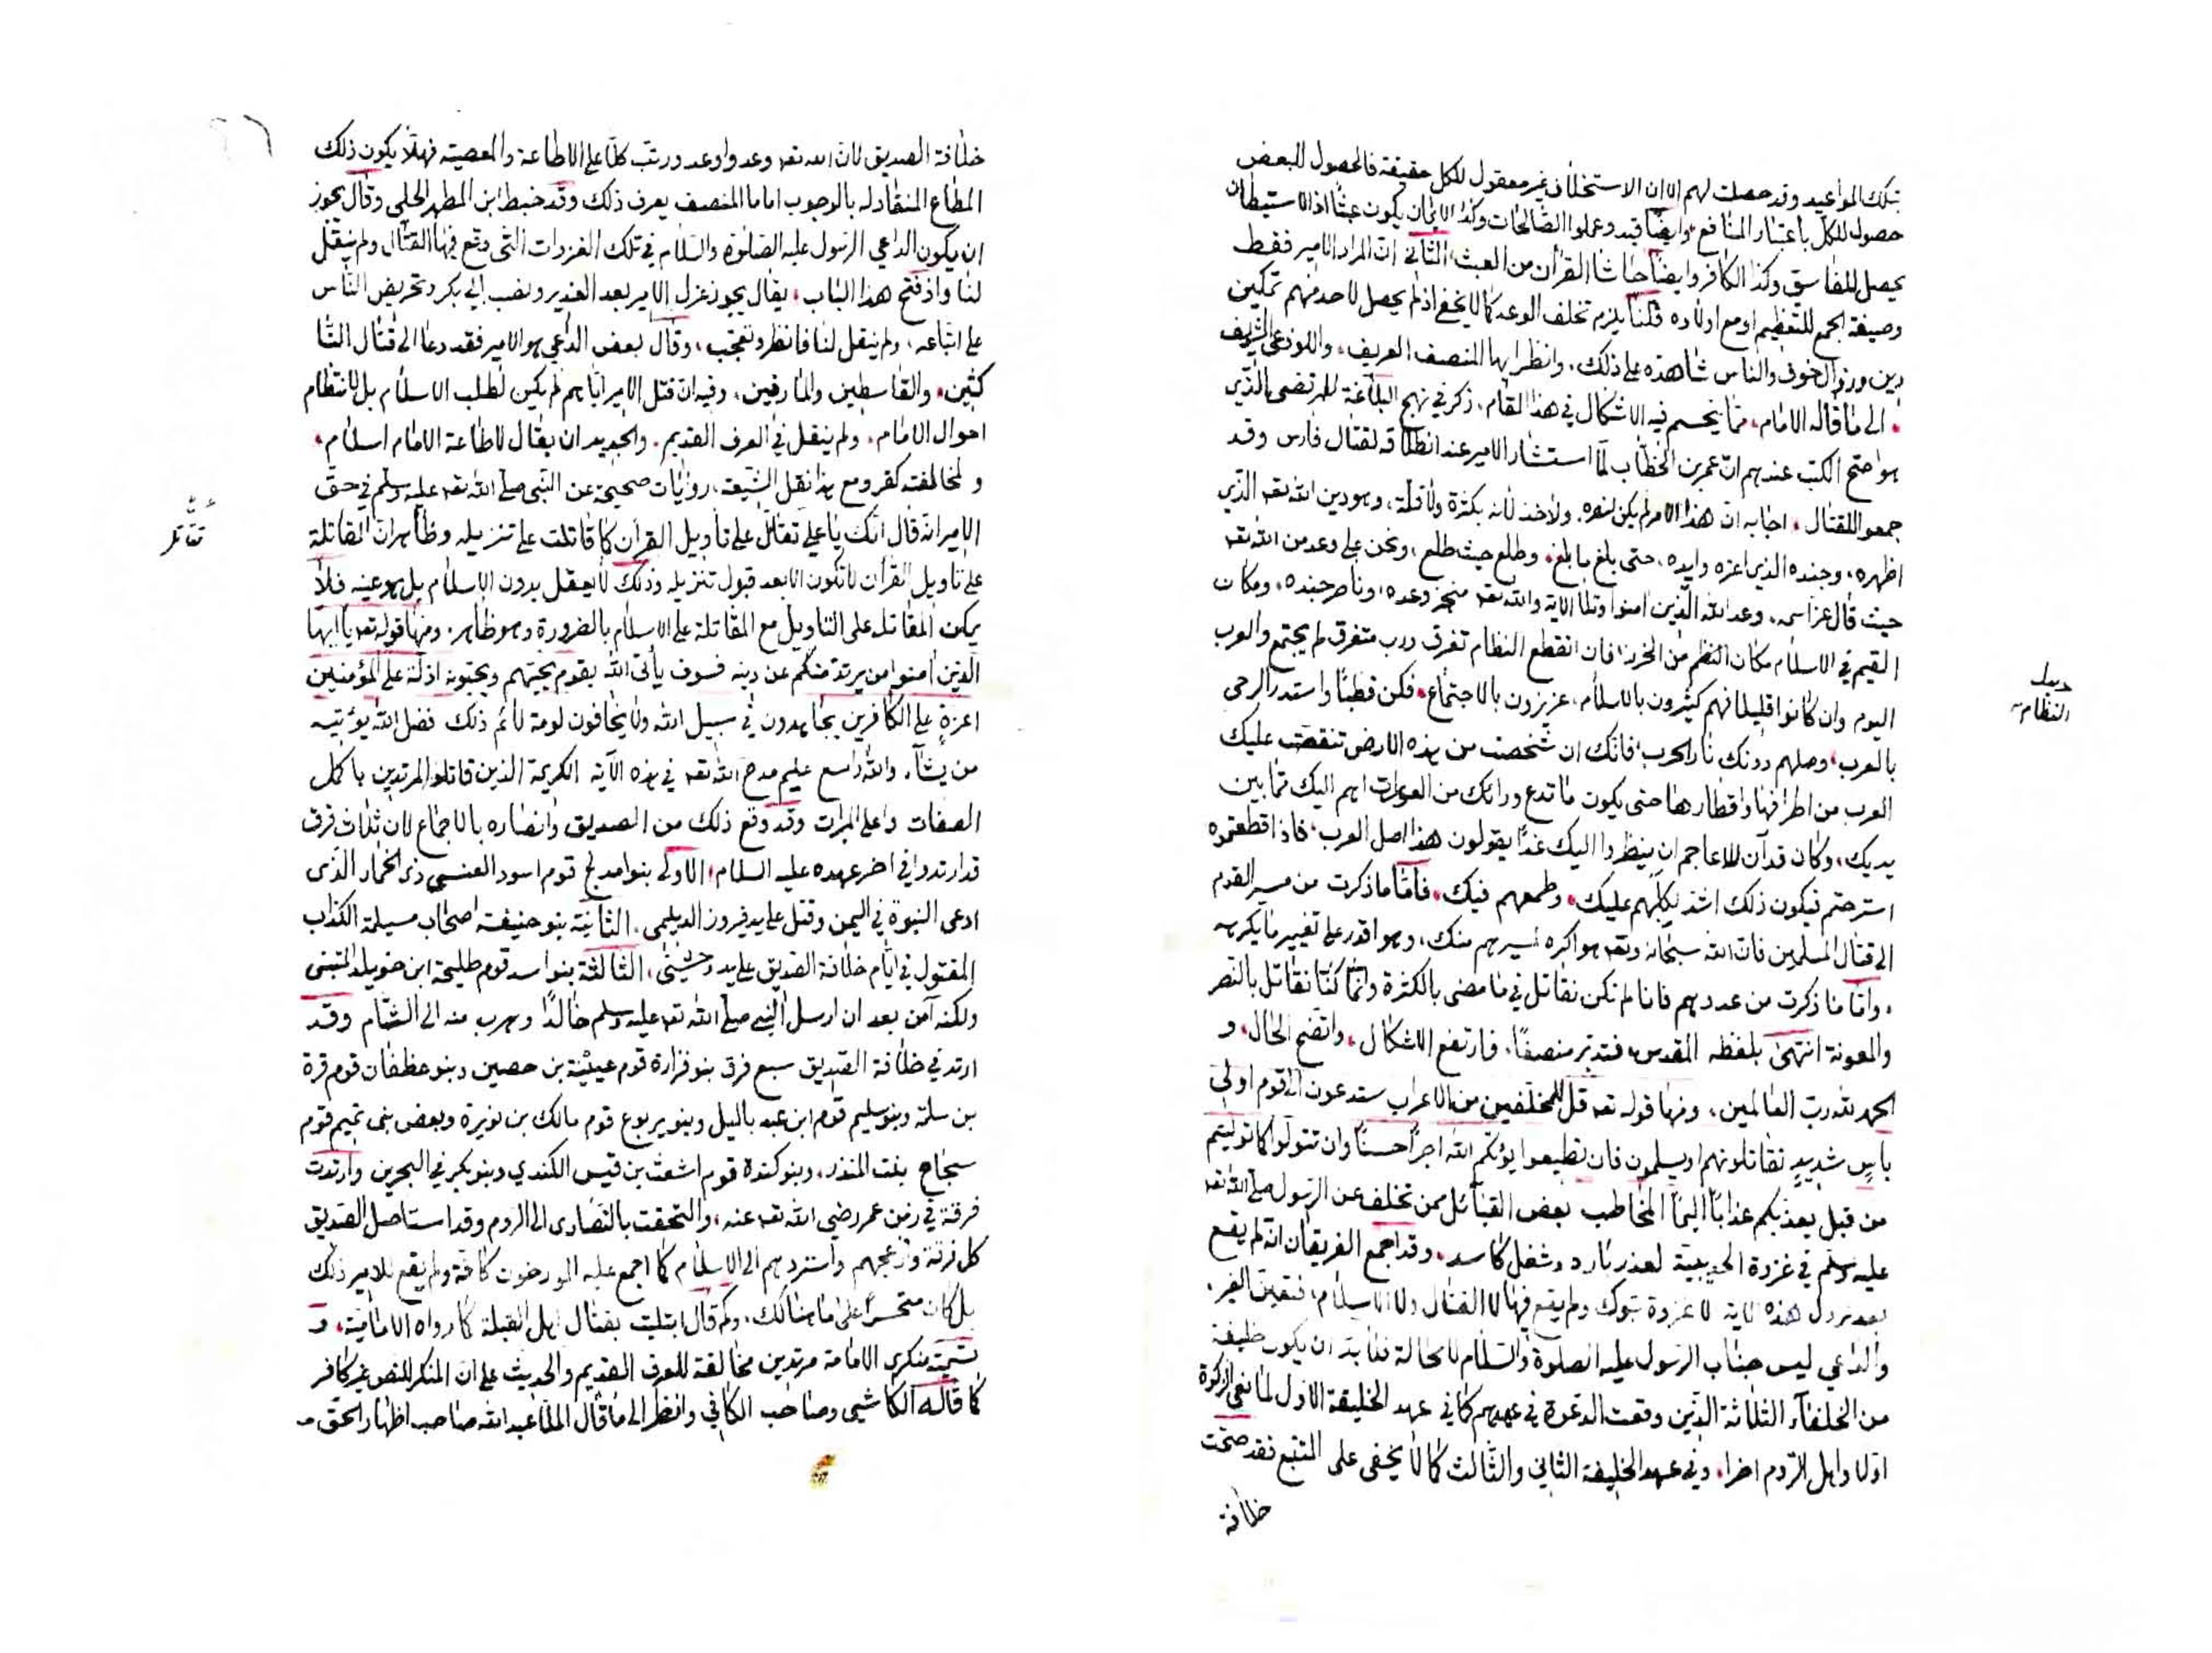 بتلك المواعيد وقد حصلت لهم الا ان الاستخلاف غير معقول للكل حقيقة فالحصول للبعض
حصول للكل باعتبار المنافع، وايضا قيد وعملوا الصالحات وكذا الايمان يكون عبثا اذ الاستيطان
يحصل للفاسق وكذا الكافر وايضا حاشا القرآن من العبث، الثاني ان المراد الامير فقط
وصيغة الجمع للتعظيم او مع اولاده قلنا يلزم تخلف الوعد كما لا يخفى اذ لم يحصل لاحد منهم تمكين
دين وزوال خوف والناس شاهدة على ذلك، وانظر ايها المنصف العريف، واللوذعي الشريف
، الى ما قاله الامام، مما ينحسم فيه الاشكال في هذا المقام، ذكر في نهج البلاغة للمرتضى الذي
هو اصح الكتب عندهم ان عمر بن الخطاب لما استشار الامير عند انطلاقه لقتال فارس وقد
جمعوا للقتال، اجابه ان هذا الامر لم يكن نصره، ولا خذلانه بكثرة ولا قلة، وهو دين الله تعه الذي
اظهره، وجنده الذي اعزه وايده، حتى بلغ ما بلغ، وطلع حيث طلع، ونحن على وعد من الله تعه
حيث قال عز اسمه، وعد الله الذين امنوا وتلا الاية والله تعه منجز وعده، وناصر جنده، ومكان
القيم في الاسلام مكان النظم من الخرز، فان انقطع النظام تفرق ورب متفرق لم يجتمع والعرب
اليوم وان كانوا قليلا فهم كثيرون بالاسلام، عزيزون بالاجتماع، فكن قطبا واستدر الرحى
بالعرب، وصلهم دونك نار الحرب، فانك ان شخصت من هذه الارض تنقضت عليك
العرب من اطرافها واقطارها حتى يكون ما تدع ورائك من العورات اهم اليك مما بين
يديك، وكان قد آن للاعاجم ان ينظروا اليك غدا يقولون هذا اصل العرب، فاذا قطعتموه
استرحتم فيكون ذلك اشد لكلبهم عليك، وطمعهم فيك، فاما ما ذكرت من مسير القوم
الى قتال المسلمين فان الله سبحانه وتعه هو اكره لسيرهم منك، وهو اقدر على تغيير ما يكره
، واما ما ذكرت من عددهم فانا لم نكن نقاتل في ما مضى بالكثرة وانما كنا نقاتل بالنصر
والمعونة انتهى بلفظه المقدس، فتدبر منصفا، فارتفع الاشكال، واتضح الحال، و
الحمد لله رب العالمين، ومنها قوله تعه قل للمخلفين من الاعراب ستدعون الى قوم اولي
باس شديد تقاتلونهم او يسلمون فان تطيعوا يؤتكم الله اجرا حسنا وان تتولوا كما توليتم
من قبل يعذبكم عذابا اليما المخاطب بعض القبائل ممن تخلف عن الرسول صلى الله تعه
عليه وسلم في غزوة الحديبية لعذر بارد وشغل كاسد، وقد اجمع الفريقان انه لم يقع
بعد نزول هذه الاية الا غزوة تبوك ولم يقع فيها لا القتال ولا الاسلام، فتعين الغير،
والداعي ليس جناب الرسول عليه الصلوة والسلام لا محالة فلا بد ان يكون خليفة
من الخلفاء الثلاثة الذين وقعت الدعوة في عهدهم كما في عهد الخليفة الاول لمانعي الزكوة
اولا واهل الروم اخرا، وفي عهد الخليفة الثاني والثالث كما لا يخفى على المتتبع فقد صحت
خلافة
النظام
خلافة الصديق لان الله تعه وعد واوعد ورتب كلا على الاطاعة والمعصية فهلا يكون ذلك
المطاع المنقاد له بالوجوب اماما المنصف يعرف ذلك وقد خبط ابن المطهر الحلي وقال يجوز
ان يكون الداعي الرسول عليه الصلوة والسلام في تلك الغزوات التي وقع فيها القتال ولم ينقل
لنا واذ فتح هذا الباب، يقال يجوز عزل الامير بعد الغدير ونصب ابي بكر وتحريض الناس
على اتباعه، ولم ينقل لنا فانظر وتعجب، وقال بعض الداعي هو الامير فقد دعا الى قتال النا
كثين، والقاسطين والمارقين، وفيه ان قتل الامير اياهم لم يكن لطلب الاسلام بل لانتظام
احوال الامام، ولم ينقل في العرف القديم، والجديد ان يقال لاطاعة الامام اسلام،
ولمخالفته كفر ومع هذا نقل الشيعة، روايات صحيحة عن النبي صلى الله تعه عليه وسلم في حق
الامير انه قال انك يا علي تقاتل على تاويل القرآن كما قاتلت على تنزيله وظاهر ان المقاتلة
على تاويل القرآن لا تكون الا بعد قبول تنزيله وذلك لا يعقل بدون الاسلام بل هو عينه فلا
يمكن المقاتلة على التاويل مع المقاتلة على الاسلام بالضرورة وهو ظاهر، ومنها قوله تعه يا ايها
الذين امنوا من يرتد منكم عن دينه فسوف يأتي الله بقوم يحبهم ويحبونه اذلة على المؤمنين
اعزة على الكافرين يجاهدون في سبيل الله ولا يخافون لومة لائم ذلك فضل الله يؤتيه
من يشآء والله واسع عليم مدح الله تعه في هذه الآية الكريمة الذين قاتلوا المرتدين باكمل
الصفات واعلى المبرات وقد وقع ذلك من الصديق وانصاره بالاجماع لان ثلاث فرق
قد ارتدوا في اخر عهده عليه السلام، الاولى بنو امدلج قوم اسود العنسي ذي الخمار الذي
ادعى النبوة في اليمن وقتل على يد فيروز الديلمي، الثانية بنو حنيفة اصحاب مسيلمة الكذاب
المقتول في ايام خلافة الصديق على يد وحشي، الثالثة بنو اسد قوم طليحة ابن خويلد المتنبى
ولكنه آمن بعد ان ارسل النبي صلى الله تعه عليه وسلم خالدا وهرب منه الى الشام وقد
ارتد في خلافة الصديق سبع فرق بنو فزارة قوم عيينة بن حصين وبنو غطفان قوم قرة
بن سلمة وبنو سليم قوم ابن عبد ياليل وبنو يربوع قوم مالك بن نويرة وبعض بني تميم قوم
سجاح بنت المنذر، وبنو كندة قوم اشعث بن قيس الكندي وبنو بكر في البحرين وارتدت
فرقة في زمن عمر رضي الله تعه عنه، والتحقت بالنصارى الى الروم وقد استاصل الصديق
كل فرقة وازعجهم واستردهم الى الاسلام كما اجمع عليه المورخون كافة ولم يقع للامير ذلك
بل كان متحسرا على ما هنالك، وكم قال ابتليت بقتال اهل القبلة كما رواه الامامية، و
تسمية منكري الامامة مرتدين مخالفة للعرف القديم والحديث على ان المنكر للنص غير كافر
كما قاله الكاشي وصاحب الكافي وانظر الى ما قال الملا عبد الله صاحب اظهار الحق
تقاتل